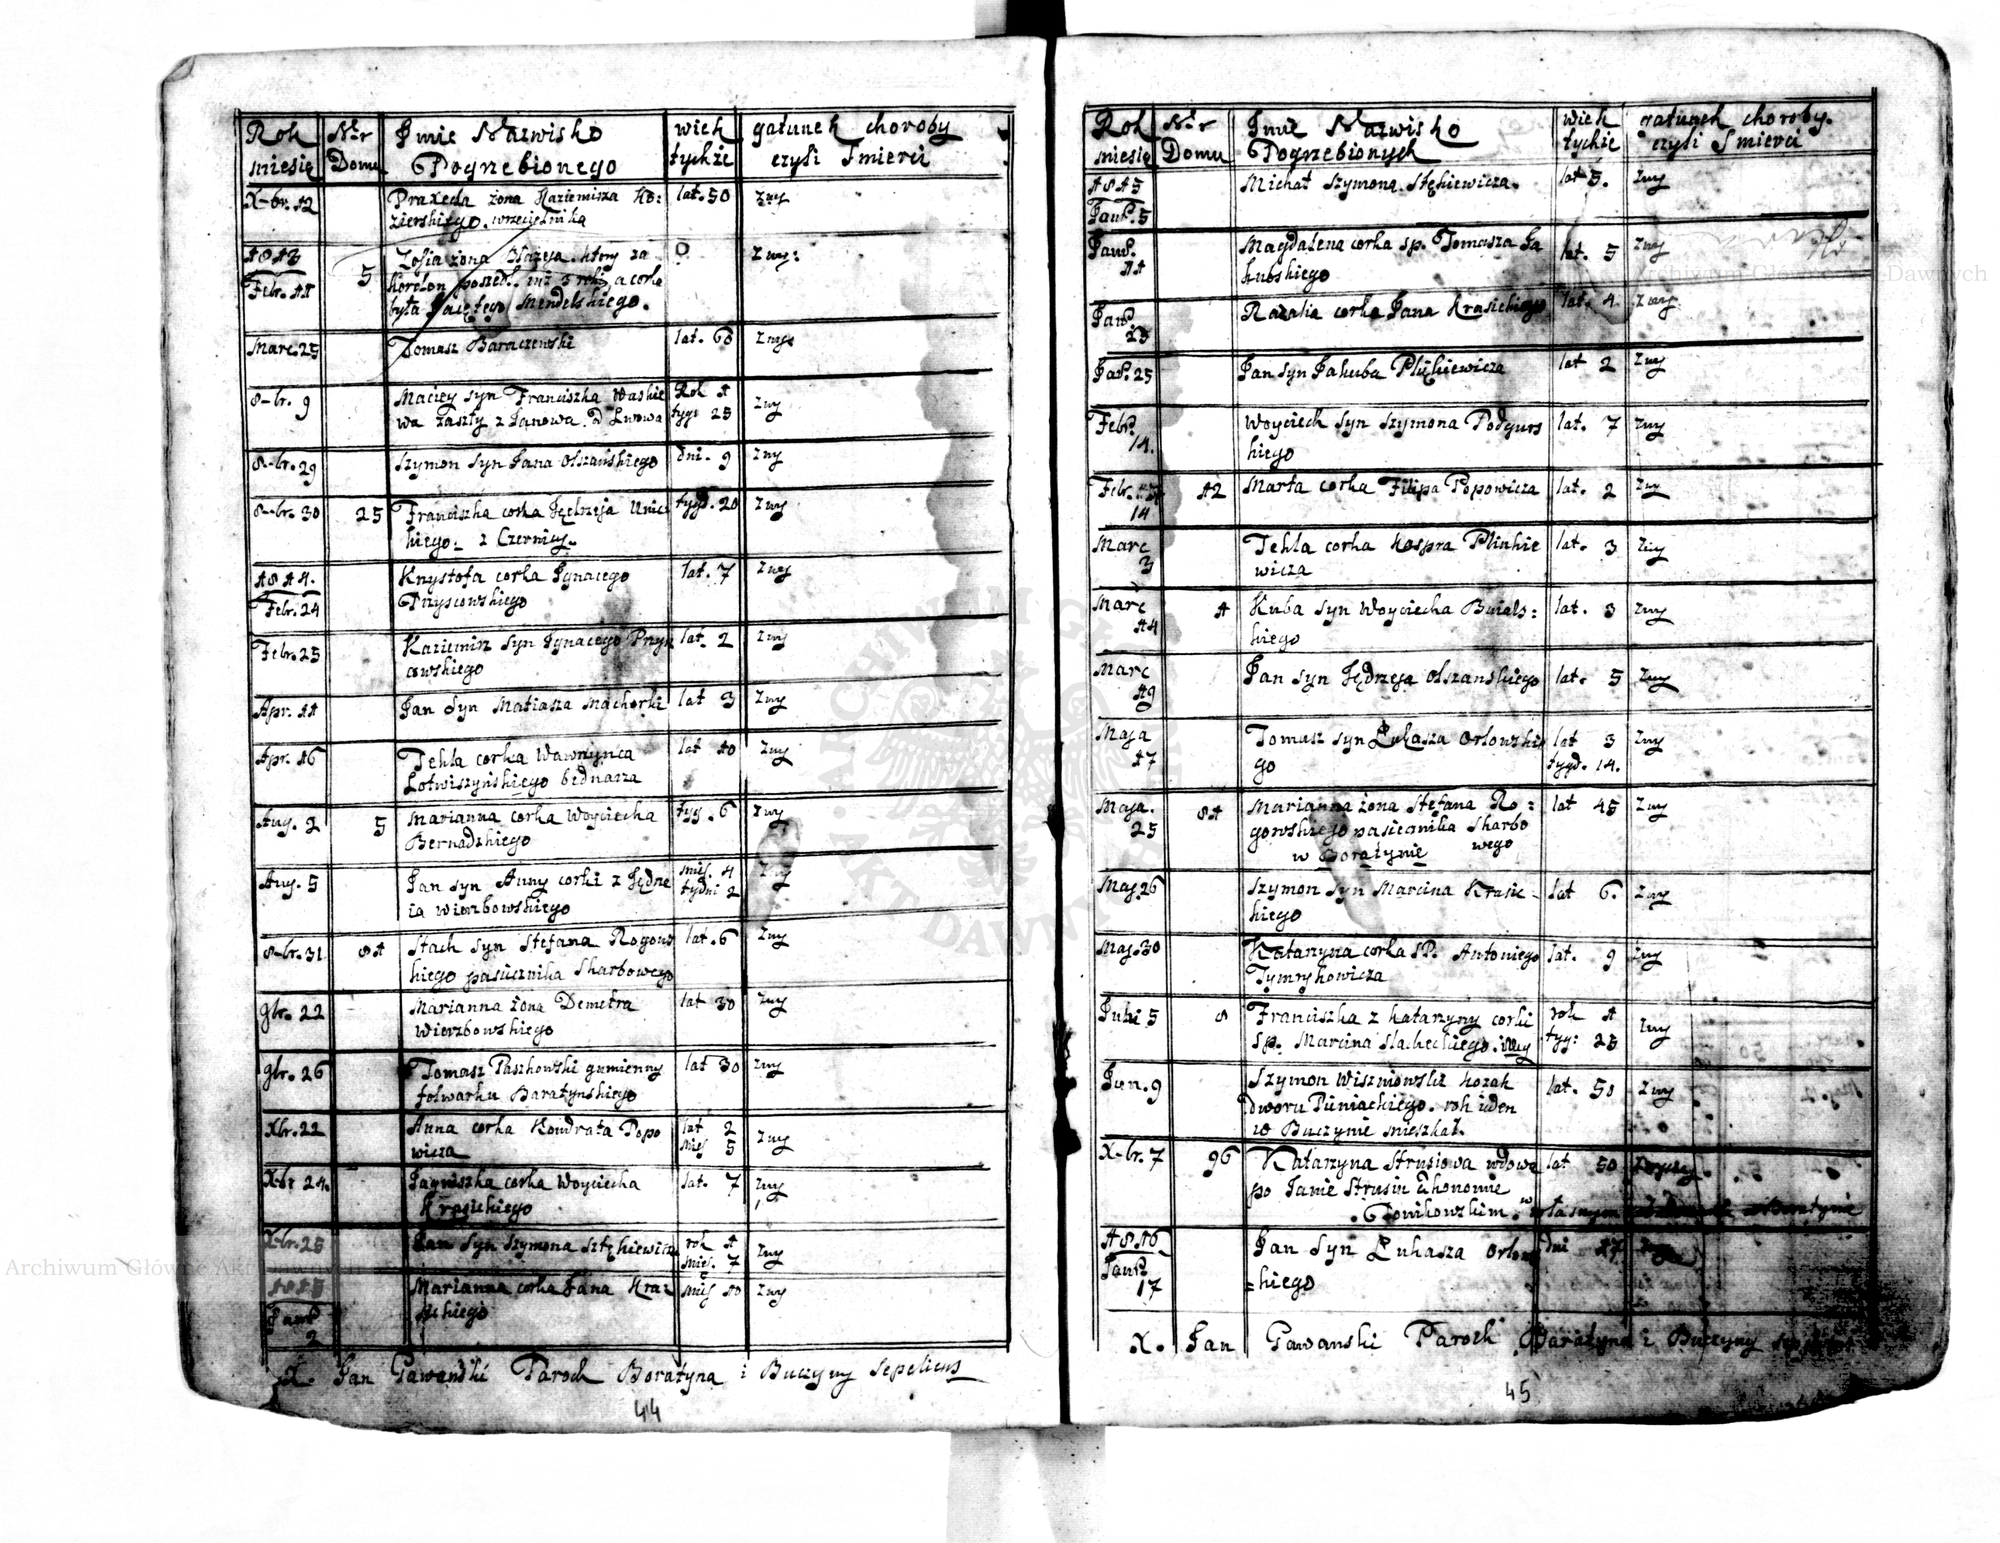 Rok
miesię
Nr
Domu
Imie Nazwisko
Pogrzebionego
wiek
życie
gatunek choroby
czyli Smierci
X-br. 12
Praxeda żona Kaziemirza Ko:
zierskiego. wrzeciennika
lat. 50
zwy
1813
Febr. 11
5
Zofia żona Błażeja. ktory za
kordon poszedł. już 3 roki, a corka
była Mendelskiego.
0
zwy:
Marc. 25
Tomasz Baraczewski
lat. 60
zwy
8-br. 9
Maciey syn Franciszka Waskie
wa zaszły z Janowa. d Lwowa
Rok 1
tyg. 25
zwy
8-br. 29
Szymon syn Jana Olszańskiego
dni. 9
zwy
8-br. 30
25
Franciszka corka Jędrzeja Unic
kiego. z Czernicy.
tyg. 20
zwy
1814.
Febr. 24
Krzystofa corka Jgnacego
Przyscowskiego
lat. 7
zwy
Febr. 25
Kaziemirz syn Jgnacego Przys
cowskiego
lat. 2
zwy
Apr. 11
Jan syn Matiasza Machorki
lat 3
zwy
Apr. 16
Tekla corka Wawrzynca
Lotwiszyńskiego bednarza
lat 10
zwy
Aug. 2
5
Marianna corka Woyciecha
Bernadzkiego
tyg. 6
zwy
Aug. 5
Jan syn Anny corki z Jędrze
ia wierzbowskiego
mies. 4
tydni 2
zwy
8-br. 31
81
Stach syn Stefana Rogows
kiego pasiecznika Skarbowego
lat. 6
zwy
9br. 22
Marianna żona Demetra
Wierzbowskiego
lat 30
zwy
9br. 26
Tomasz Paszkowski gumienny
folwarku Boratynskiego
lat 30
zwy
Xbr. 22
Anna corka Kondrata Popo
wicza
lat 2
mies 5
zwy
Xbr 24.
Jagniszka corka Woyciecha
Krasickiego
lat. 7
zwy
X-br. 25
Jan syn Szymona Sztękiewicza
rok 1
mies. 7
zwy
1815
Janr
2
Marianna corka Jana Kra:
sickiego
mies 10
zwy
X. Jan Gawański Paroch Boratyna i Buczyny sepeliens
44
Rok
miesię
Nr
Domu
Imie Nazwisko
Pogrzebionych
wiek
życie
gatunek choroby.
czyli Smierci
1815
Janr. 5
Michał Szymona Stękiewicza.
lat 5.
zwy
Janr.
11
Magdalena corka sp. Tomasza Ja
kubskiego
lat. 5
zwy
Janr.
23
Rozalia corka Jana Krasickiego
lat. 4.
zwy
Jar. 25
Jan syn Jakuba Plękiewicza
lat 2
zwy
Febr.
14.
Woyciech syn Szymona Podgurs
kiego
lat. 7
zwy
Febr.
14
12
Marta corka Filipa Popowicza
lat. 2
zwy
Marc
3
Tekla corka Kaspra Plinkie
wicza
lat. 3
zwy
Marc
14
1
Kuba syn Woyciecha Buials:
kiego
lat. 3
zwy
Marc
19
Jan syn Jędrzeja Olszanskiego
lat. 5
zwy
Maja
17
Tomasz syn Łukasza Orłowskie
go
lat 3
tygd. 14.
zwy
Maja.
25
81
Marianna żona Stefana Ro:
gowskiego pasiecznika Skarbo
wego
w Boratynie
lat 45
zwy
Maj. 26
Szymon syn Marcina Krasic
kiego
lat 6.
zwy
Maj. 30
Katarzyna corka SP. Antoniego
Tymrykowicza
lat. 9
zwy
Juni 5
8
Franciszka z Katarzyny corki
sp. Marcina Slacheckiego.
rok 1
tyg: 25
zwy
Jun. 9
Szymon Wiszniowski kozak
dworu Pieniackiego. rok ieden
w Buczynie mieszkał.
lat. 50
zwy
X-br. 7
96
Katarzyna Strusiowa wdowa
po Janie Strusiu Ekonomie
Towikowskim. w własnym
lat 50
zwyczy.
1816
Janr
17
Jan syn Łukasza Orłows
=kiego
dni 17
X. Jan Gawanski Paroch Boratyna i Buczyny
45
Archiwum Główne Akt Dawnych
ARCHIWUM GŁÓWNE AKT DAWNYCH